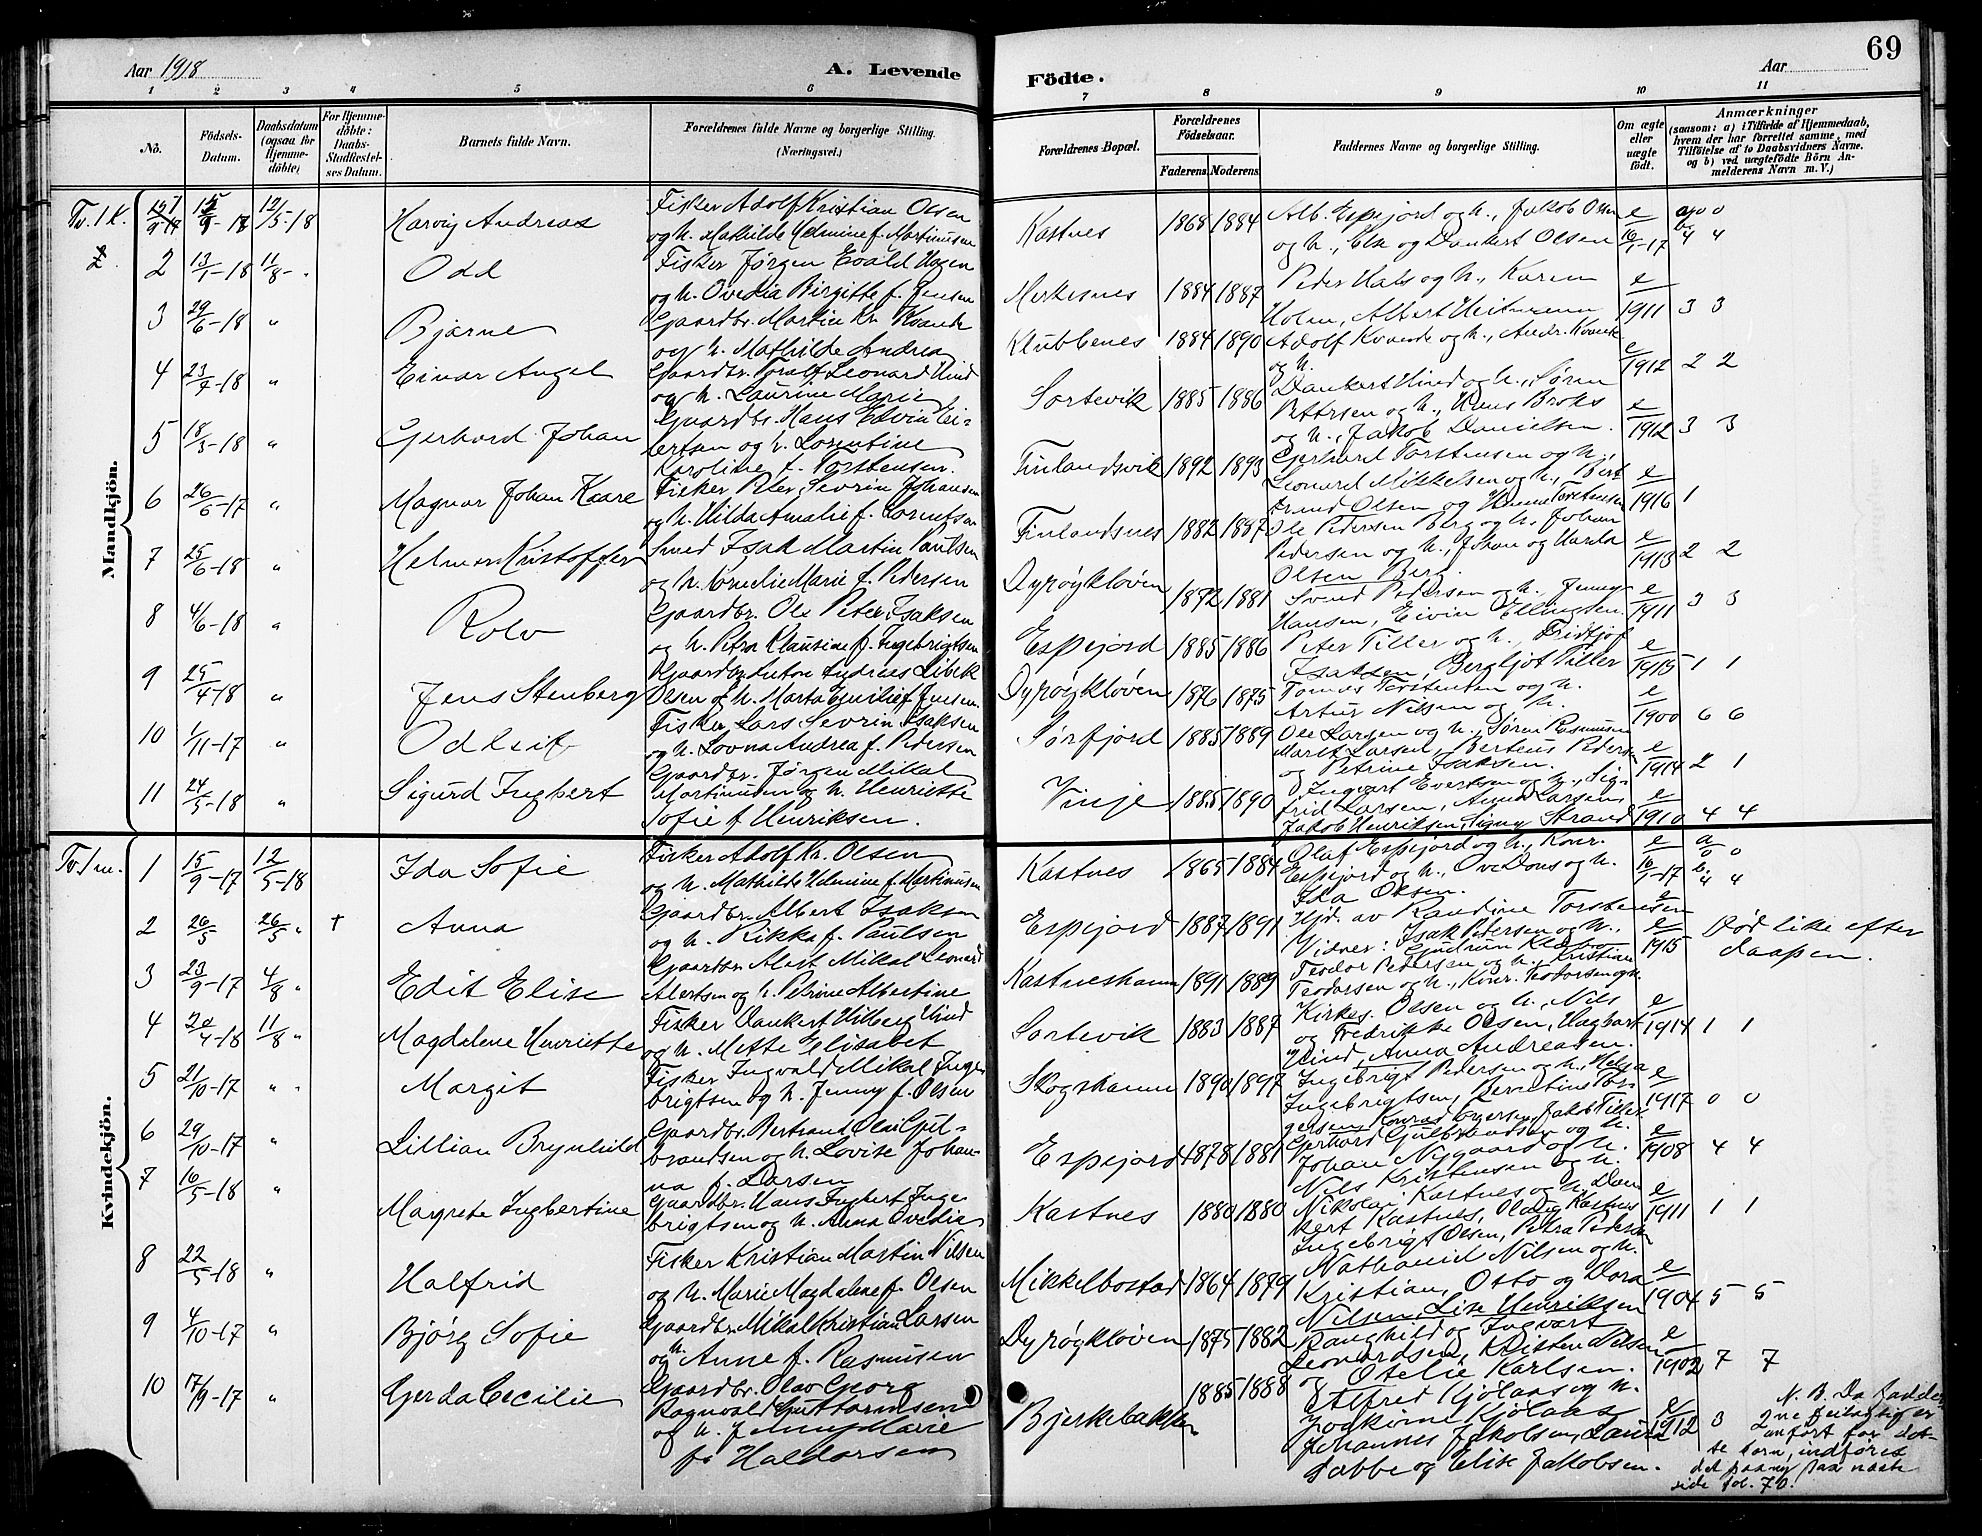 Aar 1918
A. Levende
Födte.
Aar
69
1 2 3 4 5 6 7 8 9 10 11
No.
Födsels-Datum.
Daabsdatum (ogsaa for Hjemmedöbte)
For Hjemmedöbte: Daabs-Stadfæstelses Datum.
Barnets fulde Navn.
Forældrenes fulde Navne og borgerlige Stilling.
(Næringsvei.)
Forældrenes Bopæl.
Forældrenes Födselsaar.
Faderens. Moderens.
Faddernes Navne og borgerlige Stilling.
Om ægte eller uægte födt.
Anmærkninger
(saasom: a) i Tilfælde af Hjemmedaab, hvem der har forrettet samme, med Tilföielse af to Daabsvidners Navne. og b) ved uægtefödte Börn Anmelderens Navn m. V.)
Mandkjön.
Tv. 1 k. 12/5-18 Harvig Andreas
Fisker Adolf Kristian Olsen
og h. Mathilde Helmine f. Martinusen
Kastnes 1868 1884
Alb. Espejord og h., Jakob Olsen
og h., Else og Dankert Olsen
e 16/1-17
2 13/1-18 11/8 - " Odd
Fisker Jørgen Evald Hagen
og h. Ovedia Birgitte f. Jensen
1884 1887
Peder Hals og h., Karen
Holm, Albert Heitmann
e 1911 3 3
3 29/6-18 " Bjarne
Gaardbr. Martin Kr. Kvande
og h. Mathilde Andrea
Klubbenes 1884 1890
Adolf Kvande og h., Andr. Kvande
og h.
e 1912 2 2
4 23/7-18 " Einar Angel
Gaardbr. Toralf Leonard Hind
og h. Laurine Marie
Sortevik 1885 1886
Dankert Hind og h., Søren
Pettersen og h., Hans Broks
og h., Jakob Danielsen.
e 1912 3 3
5 18/3-18 " Gerhard Johan
Gaardbr. Hans Edvin Eibertsen og h. Lorentine
Karoline f. Torstensen.
Finlandsvik 1892 1893
Gerhard Torstensen og h.,
Leonard Mikkelsen og h., Bertrand Olsen og Hanna Torstensen
e 1916 1
6 26/6-17 " Magnar Johan Kaare
Fisker Peter Sevrin Johansen
og h. Hilda Amalie f. Lorentsen
Finlandsnes 1882 1887
Ole Pedersen Berg og h. Johan
Pedersen og h., Johan og Harda
Olsen Berg.
e 1913 2 2
7 25/6-18 " Helmer Kristoffer
Smed Isak Martin Paulsen
og h. Cornelie Marie f. Pedersen
Dyrøykløven 1872 1881
Svend Pedersen og h., Jenny
Hansen, Eivin Ellingsen
e 1911 3 3
8 4/6-18 " Rolv
Gaardbr. Ole Peter Isaksen
og h. Petra Klausine f. Ingebrigtsen
Espejord 1885 1886
Peter Tiller og h., Fridtjof
Isaksen, Bergljot Tiller
e 1915 1 1
9 25/4-18 " Jens Stenberg
Gaardbr. Anton Andreas Libek
Olsen og h. Marta Emilie f. Jensen
Dyrøykløven 1876 1875
Tomas Torstensen og h.
Artur Nilsen og h.
e 1900 6 6
10 1/11-17 " Odleif
Fisker Lars Sevrin Isaksen
og h. Lovna Andrea f. Pedersen
Sørfjord 1885 1889
Ole Larsen og h., Søren Rasmussen
Marit Larsen, Bertens Pedersen
og Petrine Isaksen.
e 1914 2 1
11 24/5-18 " Sigurd Ingbert
Gaardbr. Jørgen Mikal
Martinusen og h. Henriette
Sofie f. Henriksen.
Vinje 1885 1890
Ingvart Evertsen og h., Sigfrid Larsen, Anna Larsen,
Jakob Henriksen, Signy Strand
e 1910 4 4
Kvindekjön.
Tv. 1 m. 1 15/9-17 12/5-18 Ida Sofie
Fisker Adolf Kr. Olsen
og h. Mathilde Helmine f. Martinusen
Kastnes 1865 1884
Olaf Espejord og h., Konr.
Espejord og h., Ove Dons og h.
Ida Olsen.
e 16/1-17 a 0 0 b. 4 4
2 26/5 26/5 " + Anna
Gaardbr. Albert Isaksen
og h. Rikka f. Paulsen
Espejord 1887 1891
Hjd. av Randine Torstensen
Vidner: Isak Pedersen og h.,
Gundrun Klæbo
e 1915 Død like efter
daapen.
3 23/9-17 4/8 " Edit Elise
Gaardbr. Alert Mikal Leonard
Alertsen og h. Petrine Albertine
Kastneshamn 1891 1889
Teodor Pedersen og h., Kristian
Teodorsen og h., Konr. Teodorsen og h.
4 20/4-18 11/8 " Magdalene Henriette
Fisker Dankert Hilberg Hind
og h. Mette Elisabet
Sortevik 1883 1887
Kirkes. Olsen og h., Nils
og Fredrikke Olsen, Hagbart
Hind, Anna Andreasen.
e 1914 1 1
5 21/10-17 " " Margit
Fisker Ingvald Mikal Ingebrigtsen og h. Jenny f. Olsen
Skogshamn 1890 1897
Ingebrigt Pedersen og h., Helga
Ingebrigtsen, Berntine Torgersen, Konrad Torgersen, Jakob Tiller.
e 1917 0 0
6 29/10-17 " Lillian Brynhild
Gaardbr. Bertrand Olai Gulbrandsen og h. Lovise Johanna f. Larsen
Espejord 1878 1881
Gerhard Gulbrandsen og h.
Johan Nygaard og h.
Nils Kristensen og h.
e 1908 4 4
7 16/5-18 " Magrete Ingbertine
Gaardbr. Hans Ingbert Ingebrigtsen og h. Anna Ovedia
Kastnes 1880 1880
Nikolai Kastnes og h. Dankert Kastnes, Oldag Kastnes
Ingebrigt Olsen, Petra Pedersen
e 1911 1 1
8 22/5-18 " Halfrid
Fisker Kristian Martin Nilsen
og h. Marie Magdalene f. Olsen
Mikkelbostad 1864 1879
Nathanael Nilsen og h.
Kristian, Osto og Dora
Nilsen, Lise Henriksen
e 1904 5 5
9 4/10-17 " Bjørg Sofie
Gaardbr. Mikal Kristian Larsen
og h. Anne f. Rasmusen
Dyrøykløven 1875 1882
Ranghild og Ingvart
Leonardsen, Kristen Nilsen
og Otelie Karlsen.
e 1902 7 7
10 17/9-17 " Gerda Cecilie
Gaardbr. Olav Georg
Ragnvald Guttormsen
og h. Jenny Marie
f. Haldorsen
Bjerkebakken 1885 1888
Alfred Kjølaas og h.
Joakime Kjølaas
Johannes Jakobsen, Laura
Tabbe og Elise Jakobsen.
e 1912 3 2
N. B. Da fadderne feilagtig er
anført for dette barn, indføres
det paany paa næste
side fol. 70.